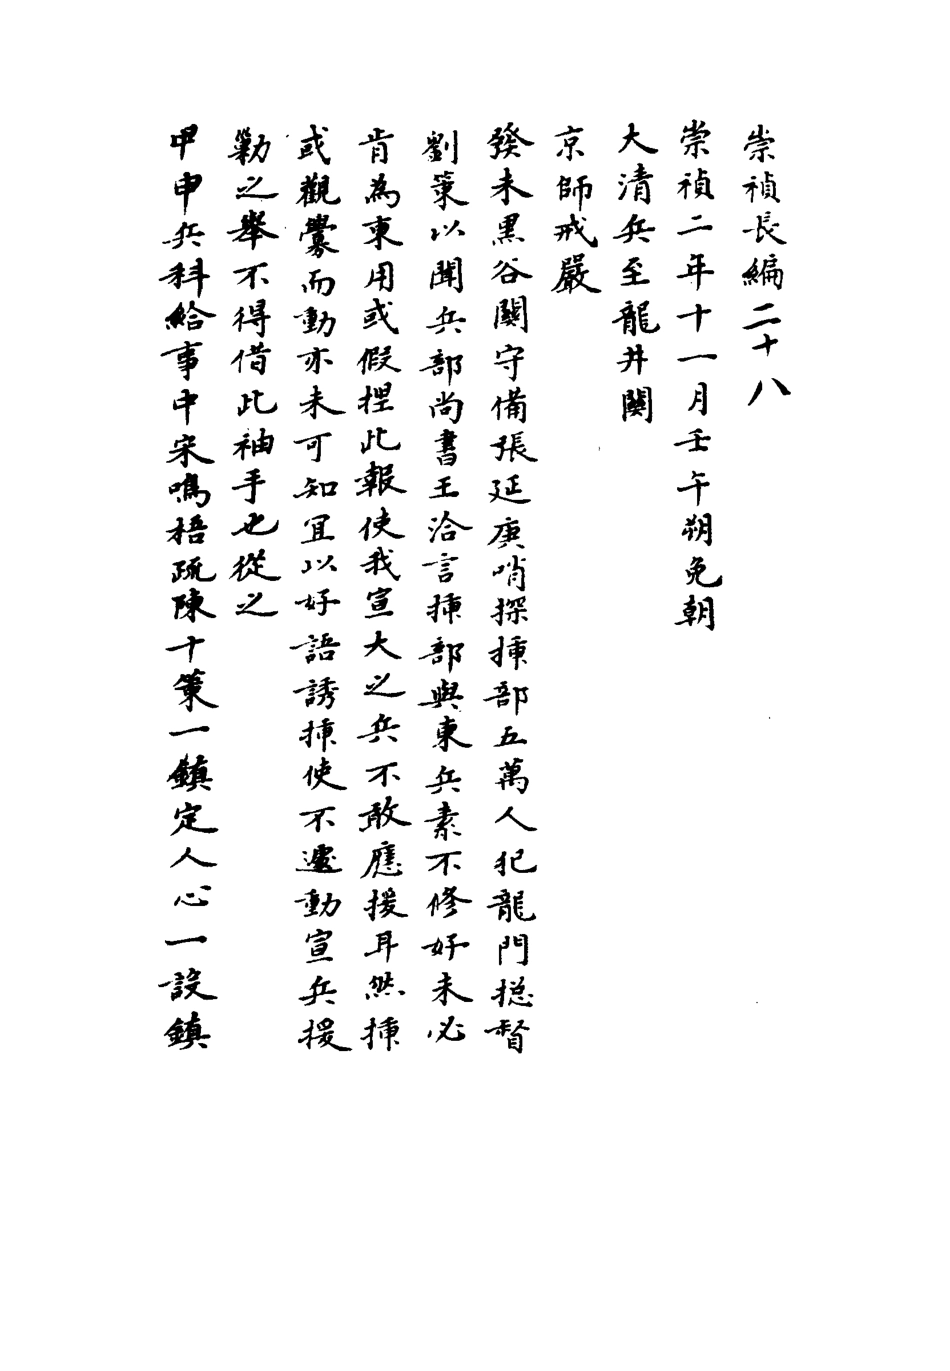 崇禎長編二十八
崇禎二年十一月壬午朔免朝
大清兵至龍井關
京師戒嚴
癸未黑谷關守備張延庚哨探揷部五萬人犯龍門揔督
劉策以聞兵部尚書王洽言揷部與東兵素不修好未必
肯為東用或假捏此報使我宣大之兵不敢應援耳然揷
或觀釁而動亦未可知宜以好語誘揷使不遽動宣兵援
勦之舉不得借此袖手也從之
甲申兵科給事中宋鳴梧疏陳十策一鎮定人心一設鎮